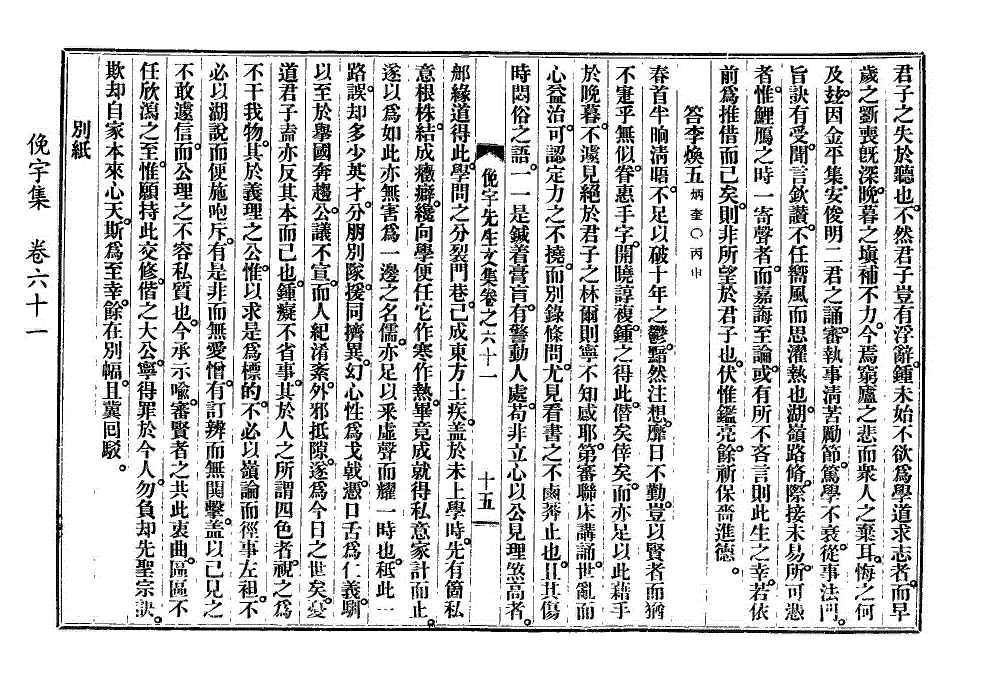 君子之失於聽也不然君子豈有浮辭鍾未始不欲爲學道求志者而早
歲之斲喪旣深晩暮之塡補不力今焉窮廬之悲而衆人之棄耳悔之何
及玆因金平集安俊明二君之誦審執事淸苦勵節篤學不衰從事法門
旨訣有受聞言欽讚不任嚮風而思濯熱也湖嶺路脩際接未易所可憑
者惟鯉鴈之時一寄聲者而嘉誨至論或有所不吝言則此生之幸若依
前爲推借而已矣則非所望於君子也伏惟鑑亮餘祈保嗇進德。
答李煥五炳奎○丙申
春首半晌淸晤不足以破十年之鬱黯然注想靡日不勤豈以賢者而猶
不寔乎無似眷惠手字開曉諄複鍾之得此偕矣倖矣而亦足以此藉手
於晩暮不遽見絕於君子之林爾則寧不知感耶第審聯床講誦世亂而
心益治可認定力之不撓而別錄條問尤見看書之不鹵莽止也且其傷
時悶俗之語一一是鍼着膏肓有警動人處苟非立心以公見理煞高者
俛宇先生文集卷之六十一 十五
郍緣道得此學問之分裂門巷已成東方士疾盖於未上學時先有箇私
意根株結成癥癖纔向學便任它作寒作熱畢竟成就得私意家計而止
遂以爲如此亦無害爲一邊之名儒亦足以釆虛聲而耀一時也秪此一
路誤却多少英才分朋別隊援同擠異幻心性爲戈戟憑口舌爲仁義馴
以至於擧國奔趨公議不宣而人紀淆紊外邪抵隙遂爲今日之世矣憂
道君子盍亦反其本而已也鍾癡不省事其於人之所謂四色者視之爲
不干我物其於義理之公惟以求是爲標的不必以嶺論而徑事左袒不
必以湖說而便施咆斥有是非而無愛憎有訂辨而無関擊盖以己見之
不敢遽信而公理之不容私質也今承示喩審賢者之共此衷曲區區不
任欣瀉之至惟願持此交修偕之大公寧得罪於今人勿負却先聖宗訣
欺却自家本來心天斯爲至幸餘在別幅且冀回駁。
別紙
俛宇集 卷六十一